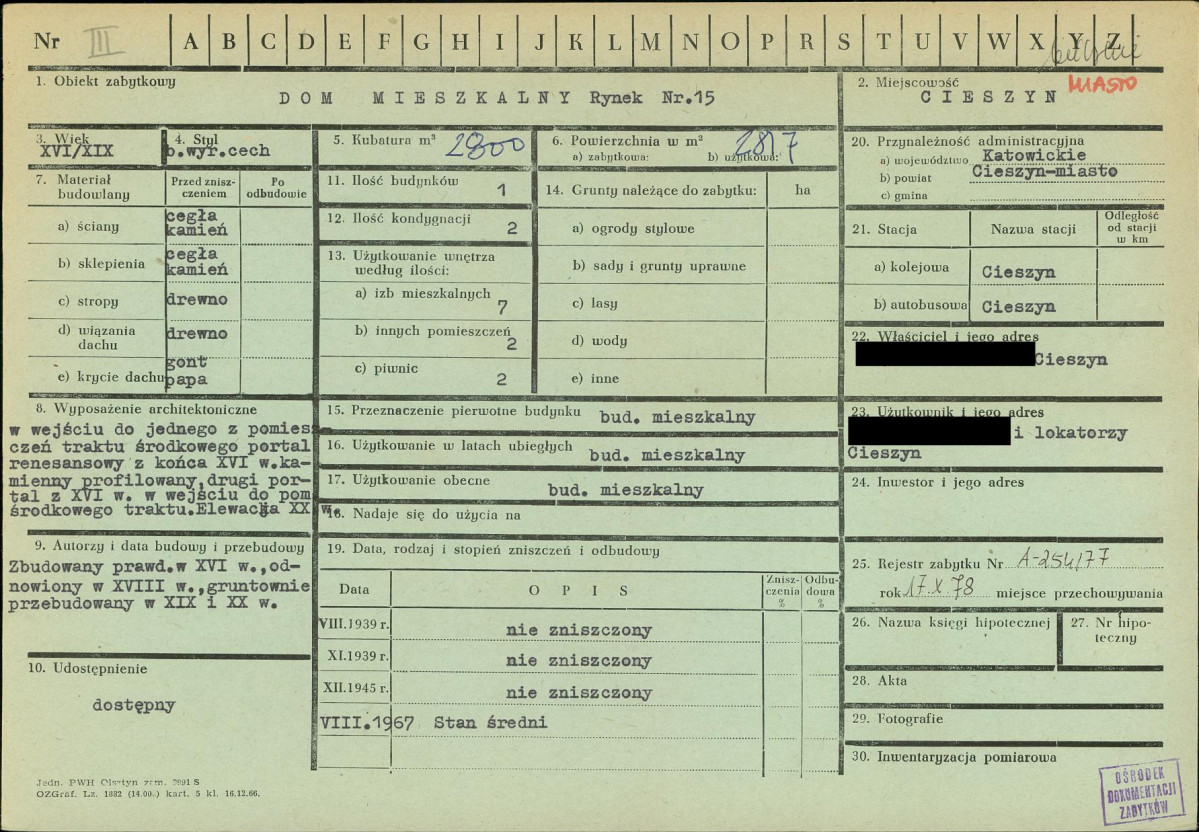 Nr III A B C D E F G H I J K L M N O P R S T U V W X Y Z
1. Obiekt zabytkowy
DOM MIESZKALNY Rynek Nr.15
2. Miejscowość
CIESZYN
MIASTO
3. Wiek
XVI/XIX
4. Styl
b.wyr.cech
5. Kubatura m³ 2800
6. Powierzchnia w m²
a) zabytkowa: b) użytkowa: 2817
7. Materiał budowlany
Przed zniszczeniem
Po odbudowie
a) ściany cegła kamień
b) sklepienia cegła kamień
c) stropy drewno
d) wiązania dachu drewno
e) krycie dachu gont papa
11. Ilość budynków 1
12. Ilość kondygnacji 2
13. Użytkowanie wnętrza według ilości:
a) izb mieszkalnych 7
b) innych pomieszczeń 2
c) piwnic 2
14. Grunty należące do zabytku: ha
a) ogrody stylowe
b) sady i grunty uprawne
c) lasy
d) wody
e) inne
20. Przynależność administracyjna
a) województwo Katowickie
b) powiat Cieszyn-miasto
c) gmina
21. Stacja
Nazwa stacji
Odległość od stacji w km
a) kolejowa Cieszyn
b) autobusowa Cieszyn
22. Właściciel i jego adres
Cieszyn
23. Użytkownik i jego adres
i lokatorzy
Cieszyn
24. Inwestor i jego adres
8. Wyposażenie architektoniczne
w wejściu do jednego z pomiesz-
czeń traktu środkowego portal
renesansowy z końca XVI w.ka-
mienny profilowany,drugi por-
tal z XVI w. w wejściu do pom
środkowego traktu.Elewacja XX w.
9. Autorzy i data budowy i przebudowy
Zbudowany prawd.w XVI w.,od-
nowiony w XVIII w.,gruntownie
przebudowany w XIX i XX w.
10. Udostępnienie
dostępny
15. Przeznaczenie pierwotne budynku bud. mieszkalny
16. Użytkowanie w latach ubiegłych bud. mieszkalny
17. Użytkowanie obecne bud. mieszkalny
18. Nadaje się do użycia na
19. Data, rodzaj i stopień zniszczeń i odbudowy
Data
OPIS
Zniszczenia %
Odbudowa %
VIII.1939 r. nie zniszczony
XI.1939 r. nie zniszczony
XII.1945 r. nie zniszczony
VIII.1967 Stan średni
25. Rejestr zabytku Nr A-254/77
rok 17.X.78 miejsce przechowywania
26. Nazwa księgi hipotecznej
27. Nr hipoteczny
28. Akta
29. Fotografie
30. Inwentaryzacja pomiarowa
Jedn. PWH Olsztyn zam. 2891 S
OZGraf. Lz. 1882 (14.00.) kart. 5 kl. 16.12.66.
OŚRODEK
DOKUMENTACJI
ZABYTKÓW